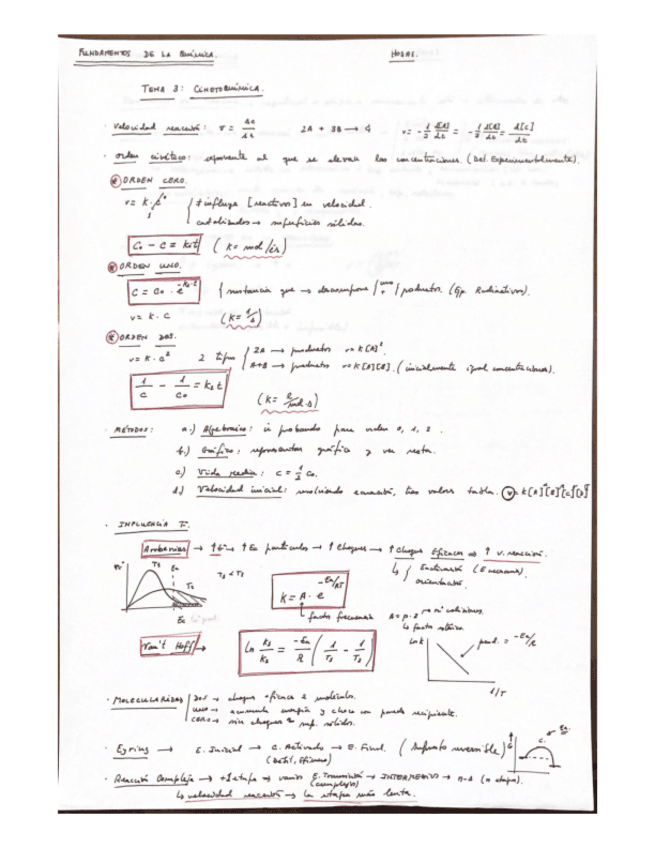 FUNDAMENTOS DE LA QUÍMICA.
TEMA 3: CINETOQUÍMICA.
· Velocidad reacción: v = Δc/Δt 2A + 3B → C v = -1/2 d[A]/dt = -1/3 d[B]/dt = d[C]/dt
· Orden cinético: exponente al que se elevan las concentraciones. (Det. Experimentalmente).
ORDEN CERO.
v = k · c⁰
∄ influye [reactivos] en velocidad.
catalizados → superficies sólidas.
C₀ - C = k₀t (k = mol/l·s)
ORDEN UNO.
C = C₀ · e^(-k₁·t) sustancia que → descompone uno + productos. (Ej. Radiactivos).
v = k · c (k = 1/s)
ORDEN DOS.
v = k · c² 2 tipos
2A → productos v = k[A]².
A+B → productos v = k[A][B]. (inicialmente igual concentraciones).
1/c - 1/c₀ = k₂t
(k = l/mol·s)
· MÉTODOS: a.) Algebraico: ir probando para orden 0, 1, 2.
b.) Gráfico: representar gráfica y ver recta.
c.) Vida media: c = 1/2 c₀.
d.) Velocidad inicial: resolviendo ecuación, tras valores tabla. v = k[A][B][C][D]
· INFLUENCIA Tª.
Arrhenius → ↑Tª → ↑Ec partículas → ↑ choques → ↑ choques Eficaces ⇒ ↑ v. reacción.
Enactivación (E necesaria).
orientación.
nº T₁ Ea T₂ T₁ < T₂ Ec
k = A · e^(-Ea/RT)
factor frecuencia A = p · z → nº colisiones.
factor estérico.
Van't Hoff → Ln k₁/k₂ = -Ea/R (1/T₁ - 1/T₂)
Ln k pend. = -Ea/R
1/T
· MOLECULARIDAD
DOS → choque eficaz 2 moléculas.
UNO → acumula energía y choca con pared recipiente.
CERO → sin choques sup. sólidos.
· Eyring → E. Inicial → C. Activado → E. Final. (Supuesto reversible)
(Débil, Efímero)
· Reacción Compleja → +1 etapa → varios E. Transición → INTERMEDIOS → n-1 (n etapas).
(complejo)
velocidad reacción → la etapa más lenta.